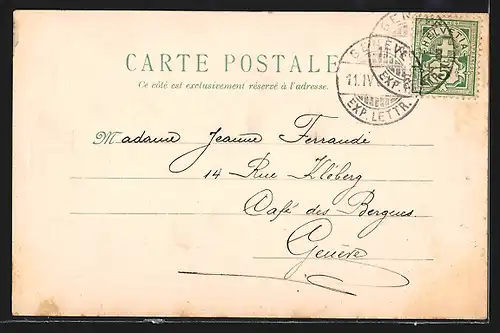 CARTE POSTALE
Ce côté est exclusivement réservé à l'adresse.
GEN
HELVETIA
11.IV
EXP. LETTR.
Madame Jeanne Ferrande
14 Rue Kléberg
Café des Bergues
Genève